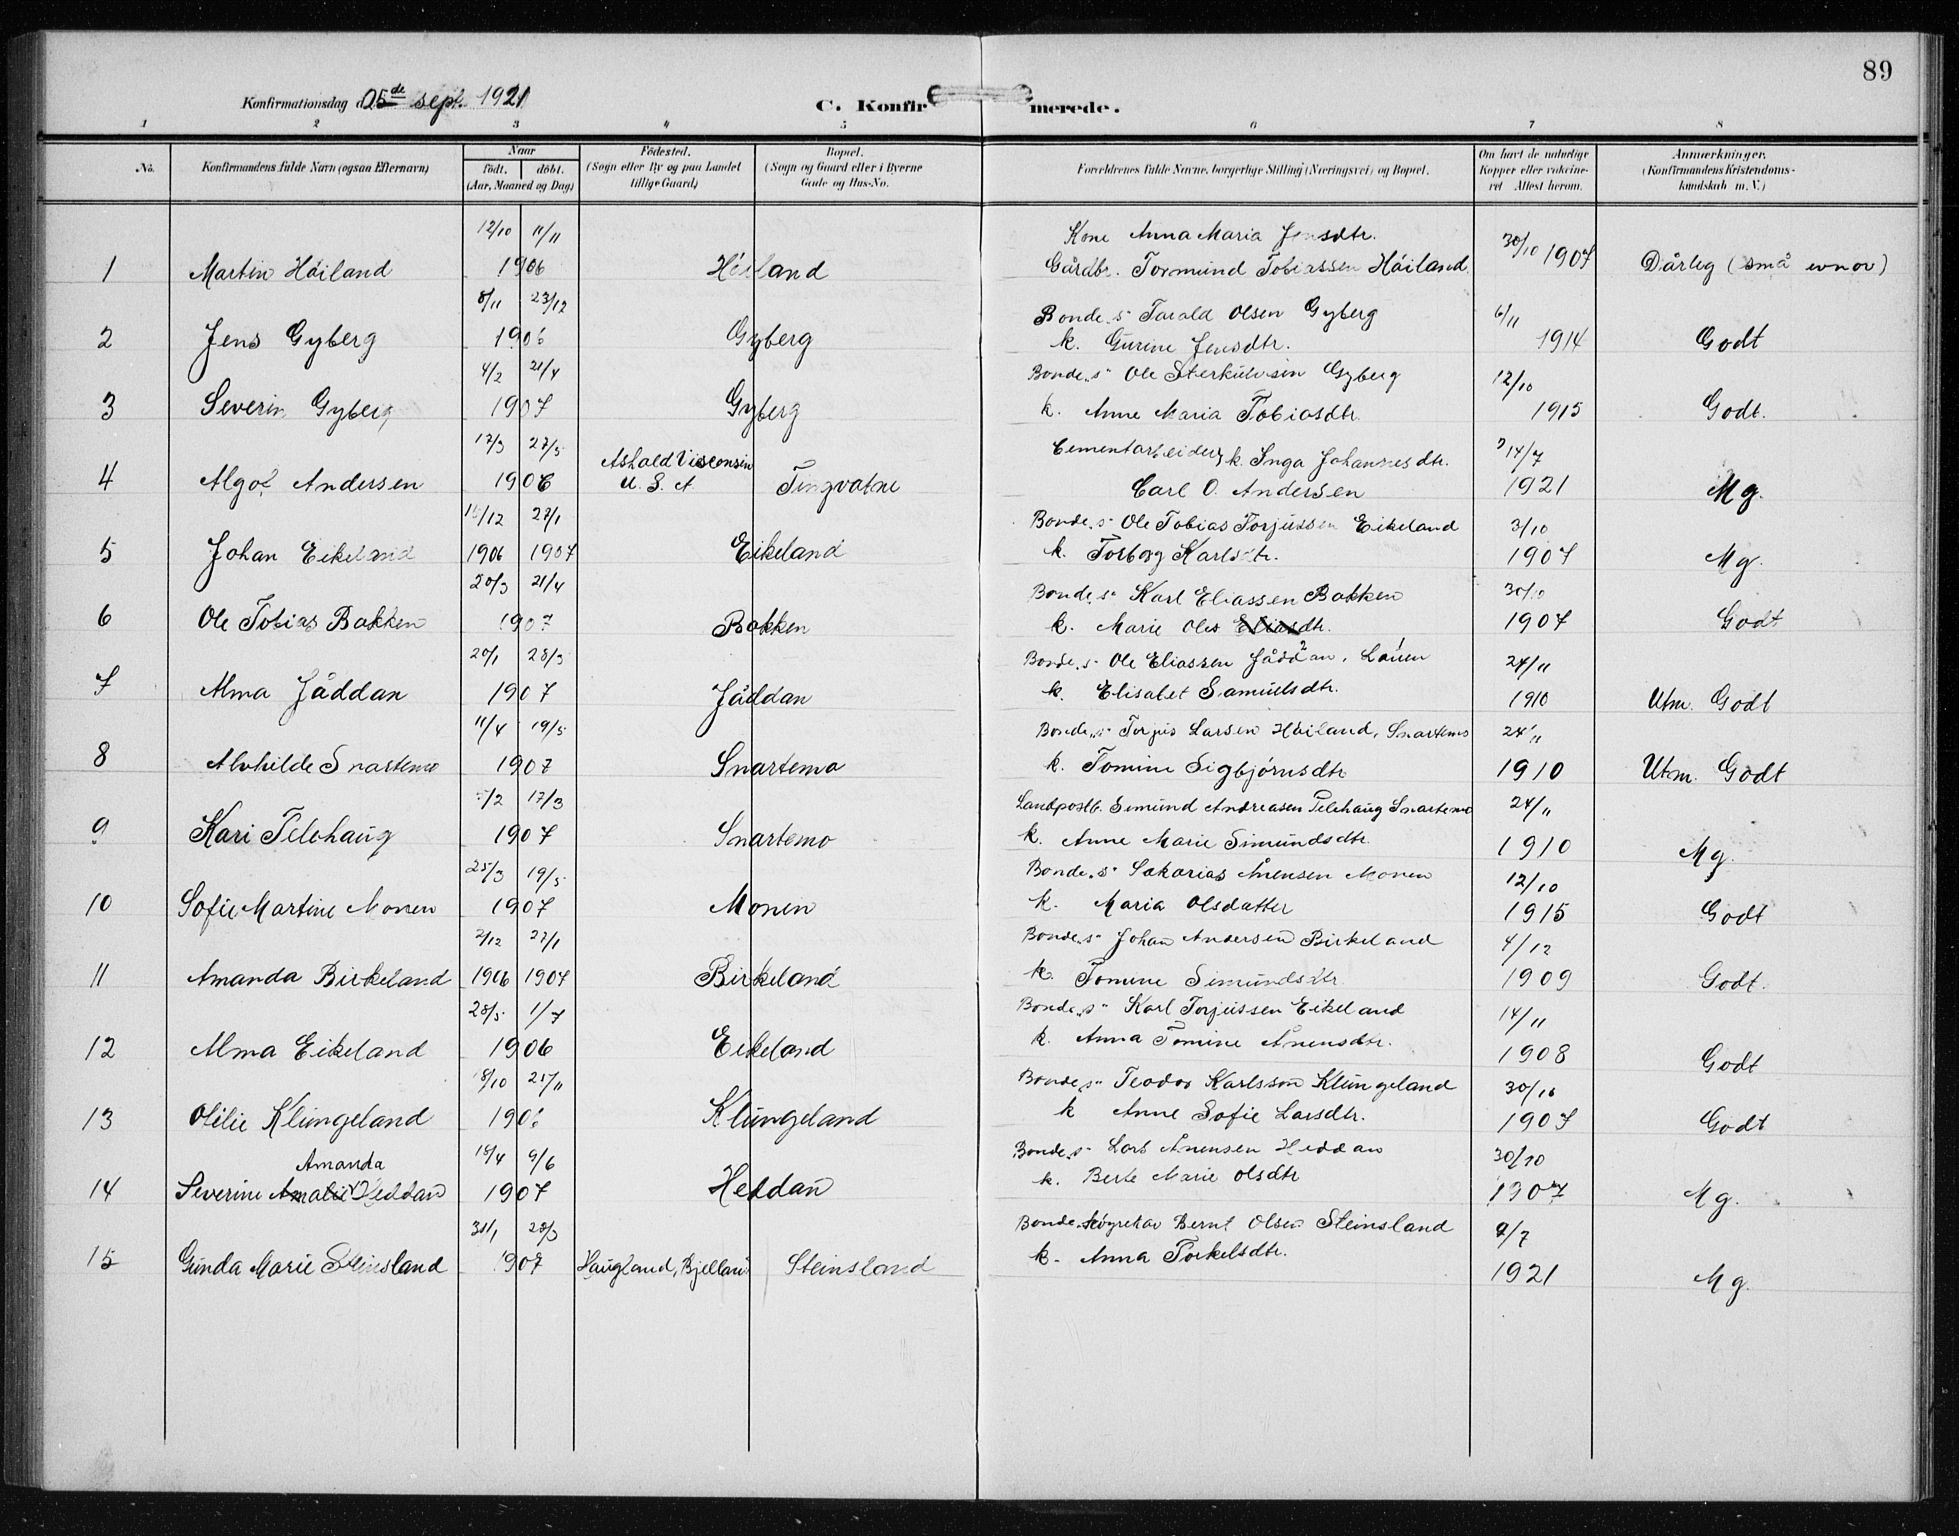 89
Konfirmationsdag d. 25de sept. 1921
C. Konfirmerede.
1 2 3 4 5 6 7 8
No. Konfirmandens fulde Navn (ogsaa Efternavn) Naar födt. döbt. (Aar, Maaned og Dag) Födested. (Sogn eller By og paa Landet tillige Gaard) Bopæl. (Sogn og Gaard eller i Byerne Gade og Hus-No. Forældrenes fulde Navne, borgerlige Stilling (Næringsvei) og Bopæl. Om havt de naturlige Kopper eller vakcineret Attest herom. Anmærkninger. (Konfirmandens Kristendomskundskab m. V.)
12/10 11/11 Kone Anna Maria Jensdtr. 30/10 1907
1 Martin Höiland 1906 Höiland Gårdbr. Tormund Tobiassen Höiland Dårleg (små evnor)
8/11 23/12 Bonde s. Tarald Olsen Gyberg 6/11
2 Jens Gyberg 1906 Gyberg k. Gurine Jensdtr. 1914 Godt
4/2 21/4 Bonde s. Ole Sterkulvsen Gyberg 12/10
3 Severin Gyberg 1907 Gyberg k. Anne Maria Tobiasdtr. 1915 Godt.
17/3 27/5 Ashald Visconsin Cementarbeider, k. Inga Johannesdtr. 14/7
4 Algot Andersen 1906 U. S. A. Tingvatne Carl O. Andersen 1921 Mg.
15/12 27/1 Bonde s. Ole Tobias Torjussen Eikeland 3/10
5 Johan Eikeland 1906 1907 Eikeland k. Torborg Karlsdtr. 1907 Mg.
20/3 21/4 Bonde s. Karl Eliassen Bakken 30/10
6 Ole Tobias Bakken 1907 Bakken k. Marie Ols Eliasdtr. 1907 Godt
20/1 28/3 Bonde s. Ole Eliassen Jåddan, Lauen 24/11
7 Alma Jåddan 1907 Jåddan k. Elisabet Samuelsdtr. 1910 Utm. Godt
11/4 19/5 Bonde s. Torjus Larsen Höiland, Snartemo 24/11
8 Alvhilde Snartemo 1907 Snartemo k. Tomine Sigbjörnsdtr 1910 Utm. Godt
5/2 17/3 Landpostb. Simund Andreasen Telehaug Snartemo 24/11
9 Kari Telehaug 1907 Snartemo k. Anne Marie Simundsdtr. 1910 Mg.
25/3 19/5 Bonde s. Sakarias Ånensen Monen 12/10
10 Sofie Martine Monen 1907 Monen k. Maria Olsdatter 1915 Godt
2/12 27/1 Bonde s. Johan Andersen Birkeland 4/12
11 Amanda Birkeland 1906 1907 Birkeland k. Tomine Simundsdtr. 1909 Godt.
28/5 1/7 Bonde s. Karl Torjussen Eikeland 14/11
12 Alma Eikeland 1906 Eikeland k. Anna Tomine Ånensdtr. 1908 Godt
18/10 25/11 Bonde s. Teodor Karlsson Klungeland 30/10
13 Otilie Klungeland 1906 Klungeland k Anne Sofie Larsdtr. 1907 Godt
Amanda 18/4 9/6 Bonde s. Lars Ånensen Heddan 30/10
14 Severine Amalie Heddan 1907 Heddan k. Berte Marie Olsdtr 1907 Mg.
31/1 28/3 Bonde Bernt Olsen Steinsland 9/7
15 Gunda Marie Steinsland 1907 Haugland, Bjelland Steinsland k. Anna Torkelsdtr. 1921 Mg.